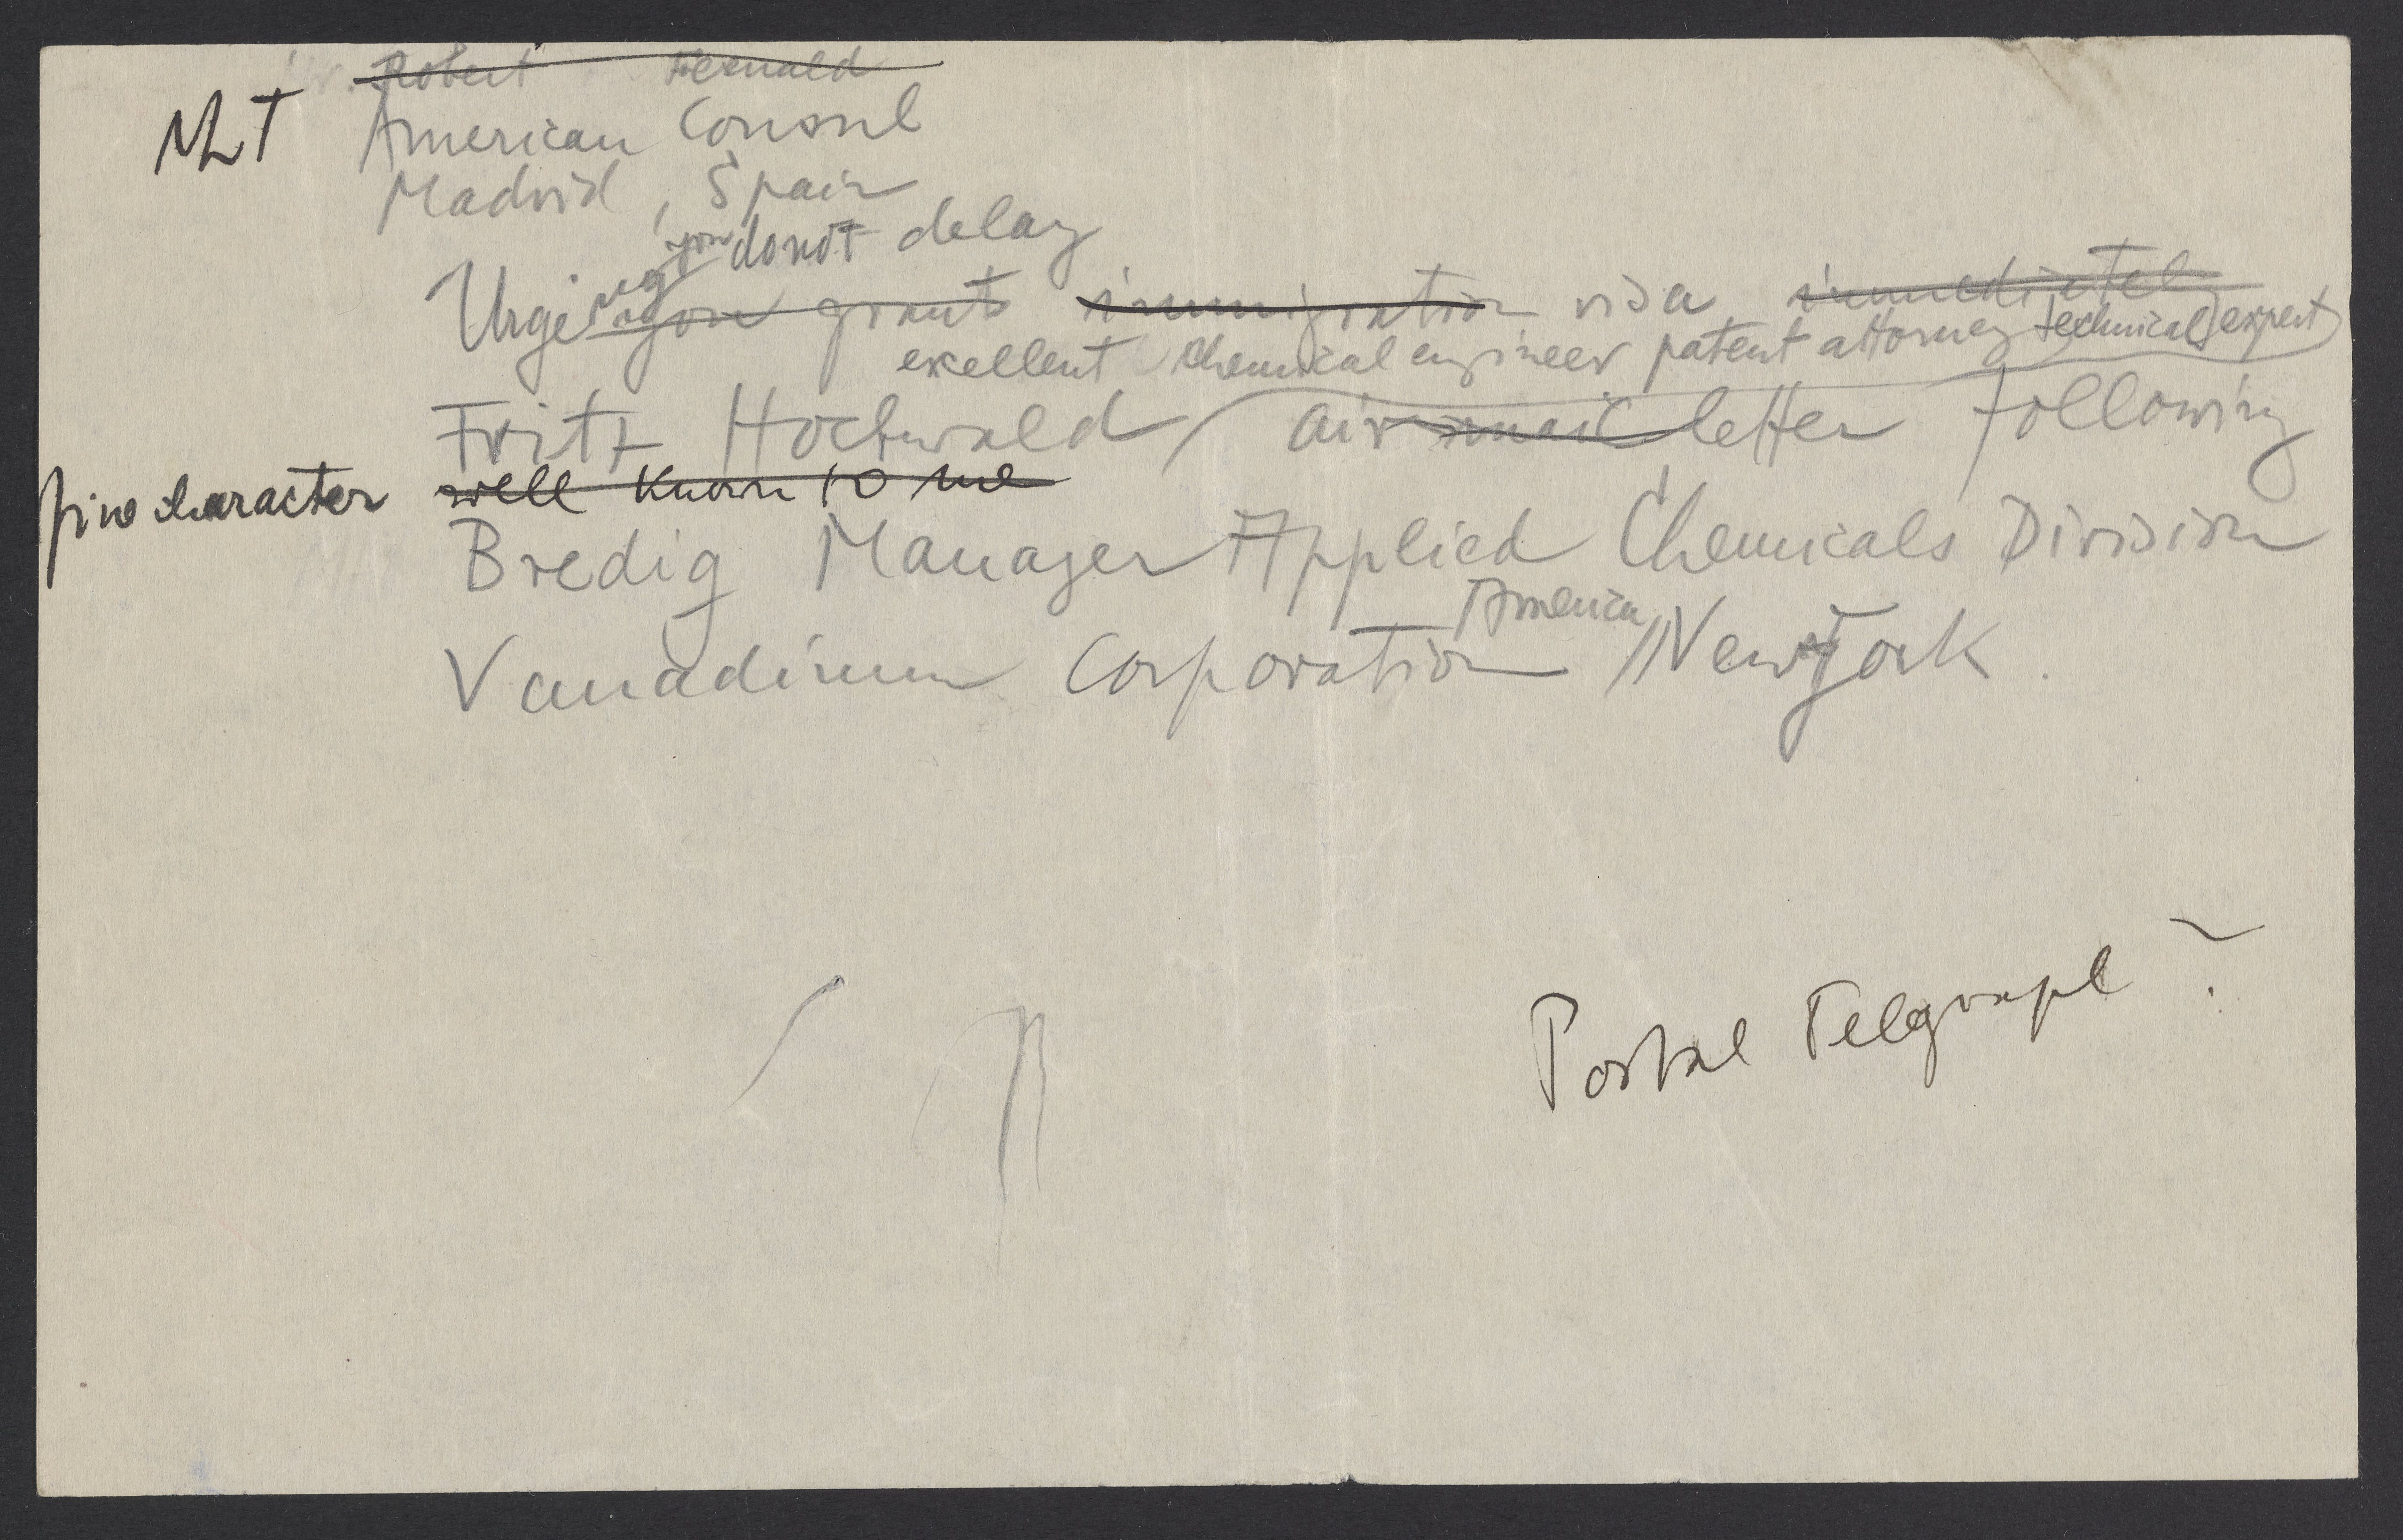 Robert
NLT American Consul
Madrid, Spain
you donot delay
Urging you grant immigration visa immediately
exellent chemical engineer patent attorney technical expert
Fritz Hochwald air mail letter following
fine character well known to me
Bredig Manager Applied Chemicals Division
America
Vanadium Corporation New York.
Postal Telgraph?